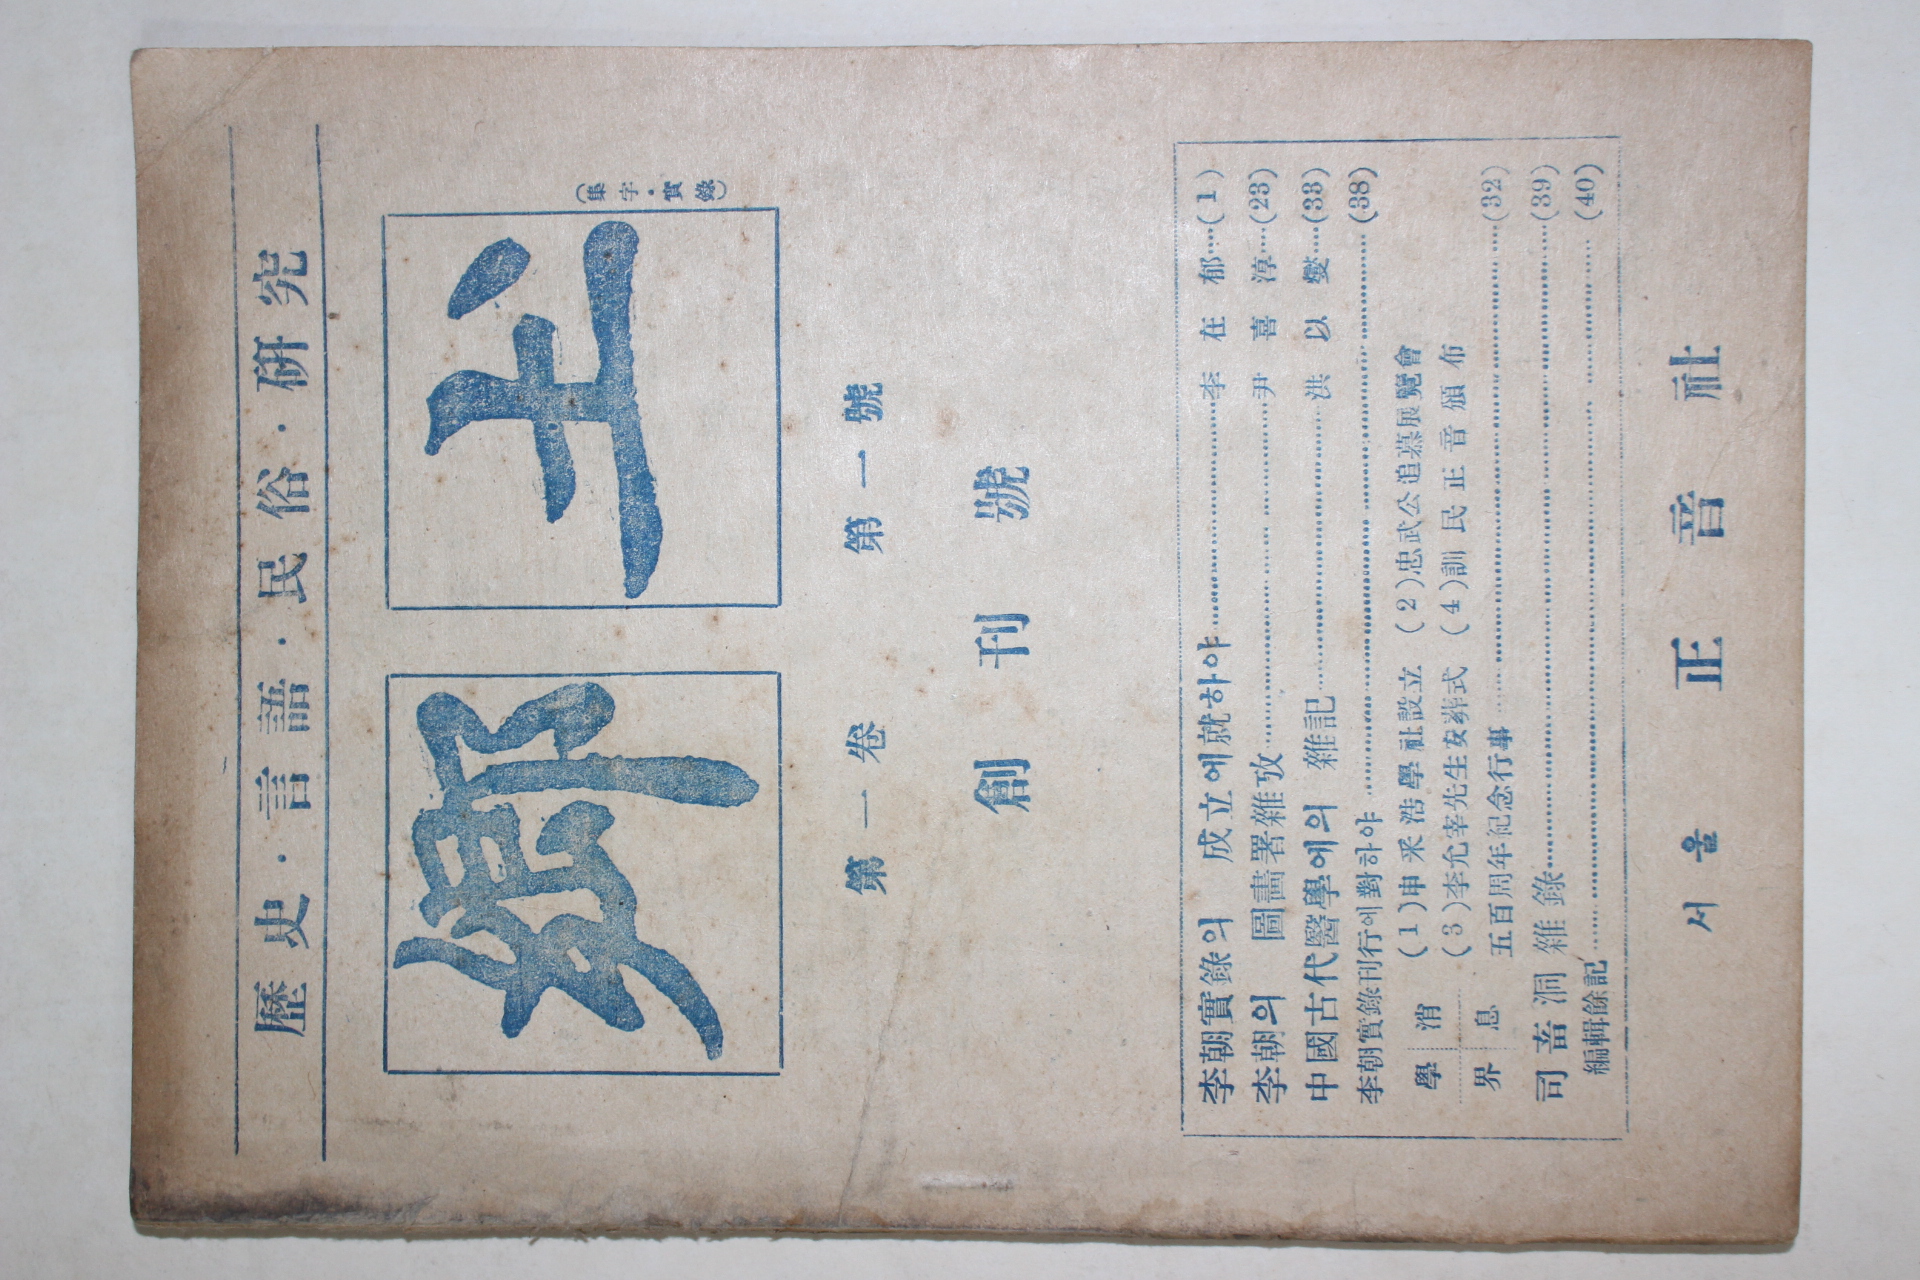 歷史·言語·民俗·硏究
鄕土
(集字·實錄)
第一卷 第一號
創刊號
李朝實錄의 成立에就하야……………………李在郁…(1)
李朝의 圖畵署雜攷……………………尹喜淳…(23)
中國古代醫學에의 雜記……………………洪以燮…(33)
李朝實錄刊行에對하야……………………(38)
學界消息
(1)申采浩學社設立 (2)忠武公追慕展覽會
(3)李允宰先生安葬式 (4)訓民正音頒布
五百周年紀念行事……………………(32)
司畜洞雜錄……………………(39)
編輯餘記……………………(40)
서울 正音社